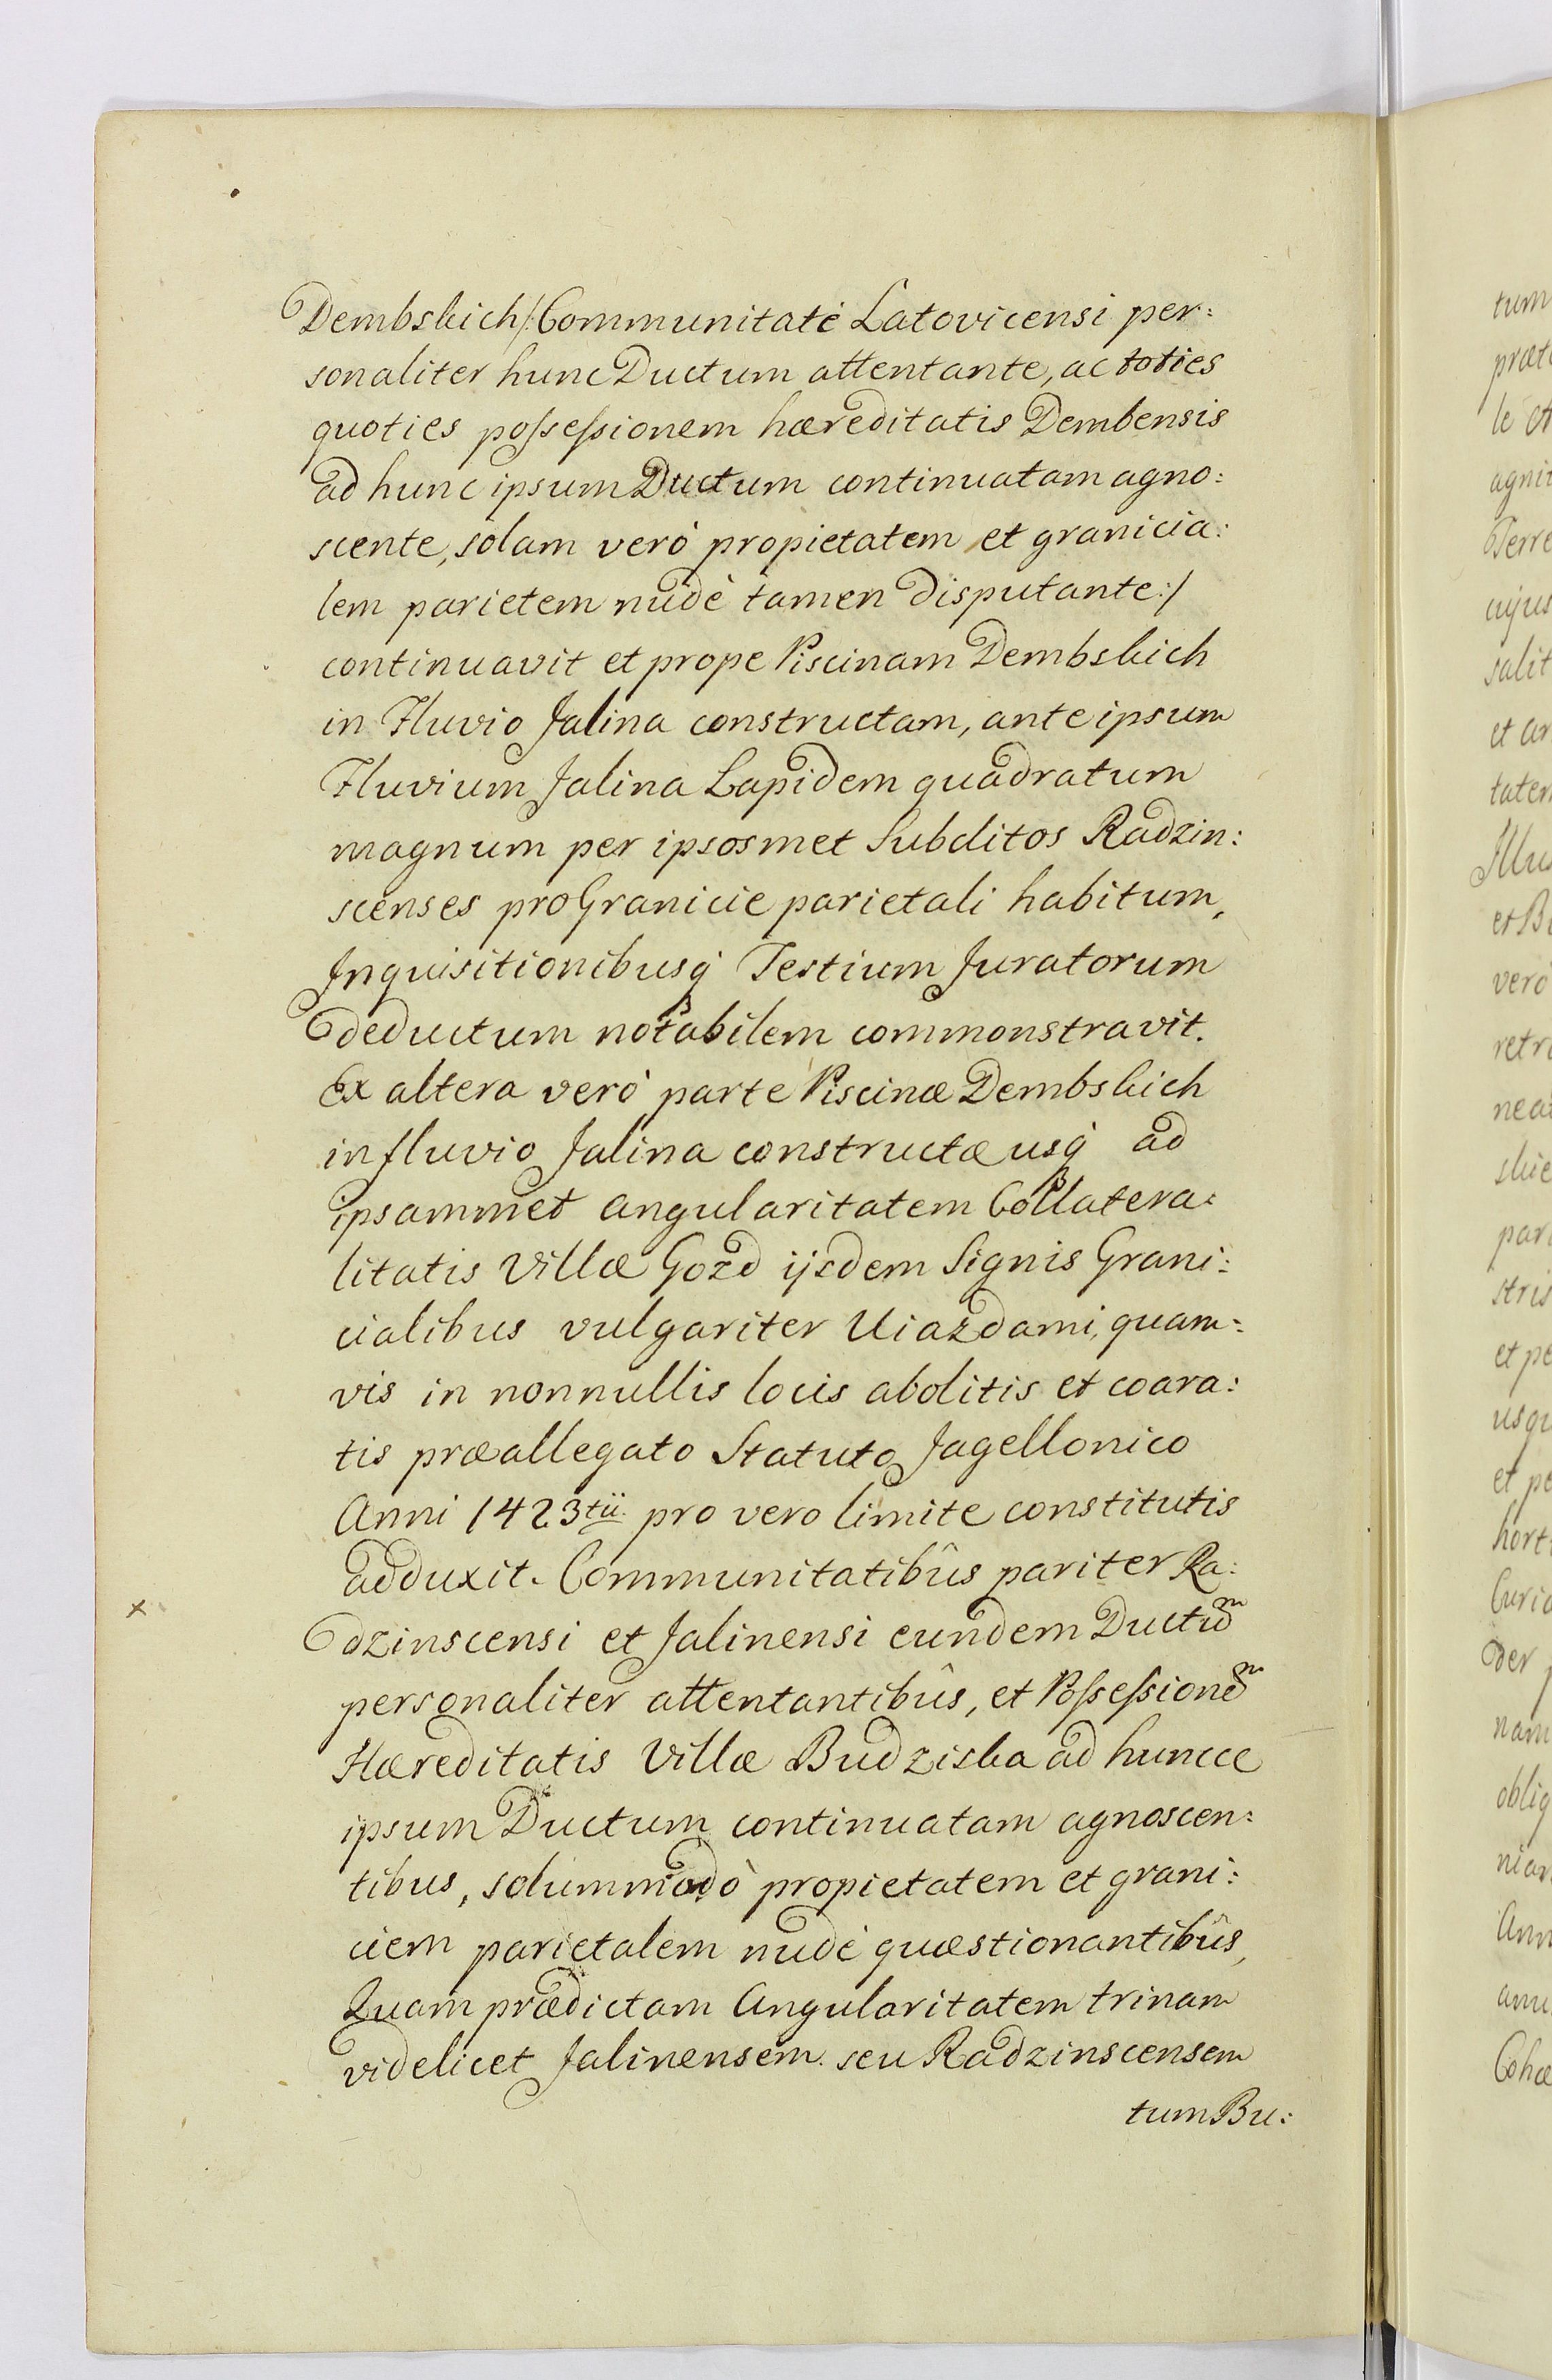 Dembskich/:Communitatè Latovicensi per:
sonaliter hunc Ductum attentante, ac toties
quoties possessionem hæreditatis Dembensis
ad hunc ipsum Ductum continuatam agno:
scente, solam verò propietatem et granicia:
lem parietem nudè tamen disputante:/
continuavit et prope Piscinam Dembskich
in Fluvio Jalina constructam, ante ipsum
Fluvium Jalina Lapidem quadratum
magnum per ipsosmet Subditos Radzin:
scenses pro Granicie parietali habitum,
Inquisitionibusq́ Testium Juratorum
deductum notabilem commonstravit.
Ex altera verò parte Piscinæ Dembskich
in fluvio Jalina constructæ usq́ ad
ipsammet angularitatem Collatera:
litatis Villæ Gozd ijsdem Signis Grani:
cialibus vulgariter Uiazdami, quam:
vis in nonnullis locis abolitis et coara:
tis præallegato Statuto Jagellonico
Anni 1423tii. pro vero limite constitutis
adduxit. Communitatibûs pariter Ra:
dzinscensi et Jalinensi eundem Ductum
personaliter attentantibûs, et Possessionem
Hæreditatis Villæ Budziska ad huncce
ipsum Ductum continuatam agnoscen:
tibus, solummodò propietatem et grani:
ciem parietalem nudè quæstionantibûs,
Quam prædictam Angularitatem trinam
videlicet Jalinensem. seu Radzinscensem
tum Bu:
tum
le et
Terre
cujus
salit
et ar
et B
verò
retr
par
stris
et pe
usqu
et pe
hort
Curia
der
nam
oblig
Ann
Cohæ